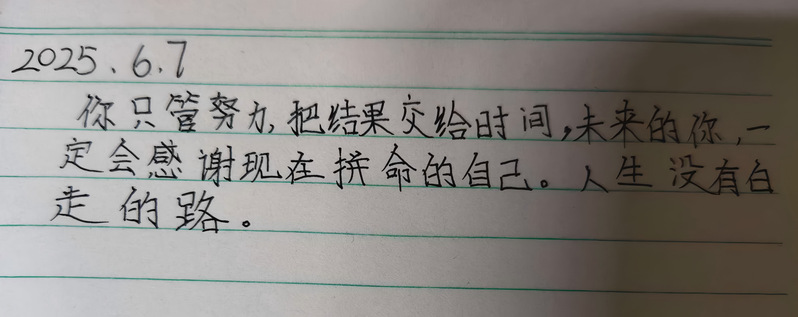 2025.6.7
你只管努力,把结果交给时间,未来的你,一
定会感谢现在拼命的自己。人生没有白
走的路。